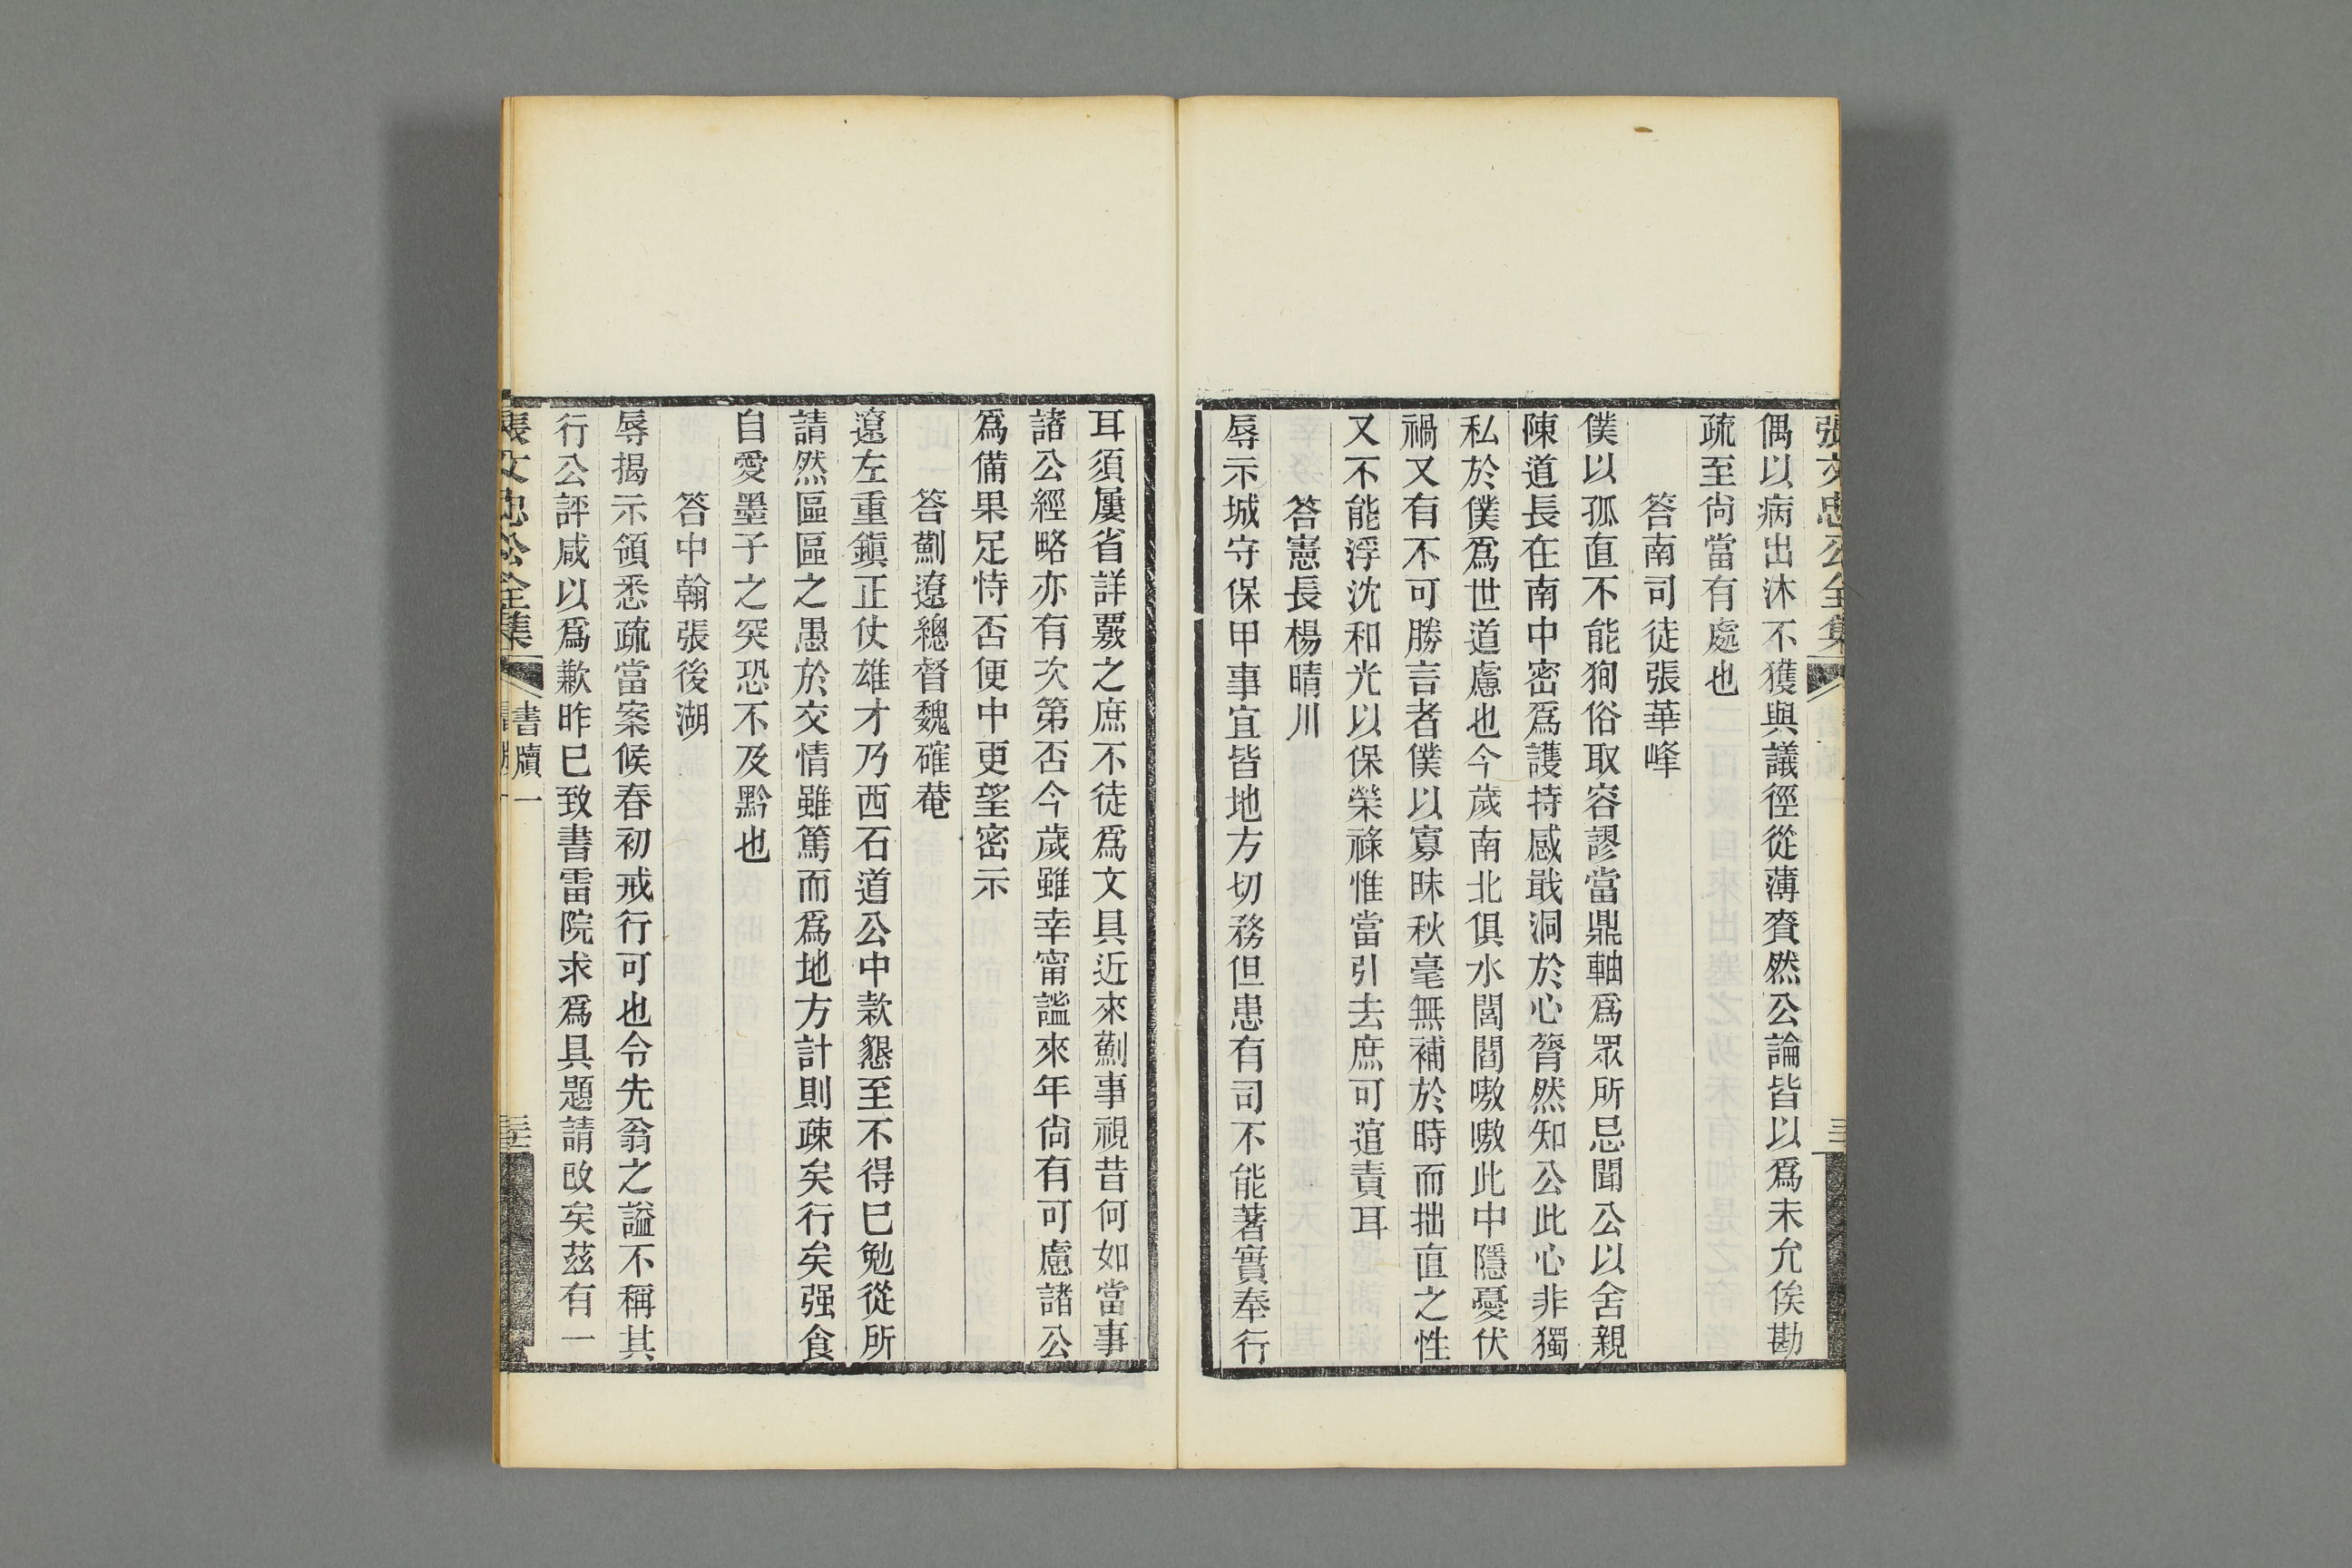 張文忠公全集
偶以病出沐不獲與議徑從薄賚然公論皆以爲未允俟勘
疏至尙當有處也
答南司徒張華峰
僕以孤直不能狥俗取容謬當鼎軸爲眾所忌聞公以舍親
陳道長在南中密爲護持感戢洞於心膂然知公此心非獨
私於僕爲世道慮也今歲南北俱水閭閻嗷嗷此中隱憂伏
禍又有不可勝言者僕以寡昧秋毫無補於時而拙直之性
又不能浮沈和光以保榮祿惟當引去庶可逭責耳
答憲長楊晴川
辱示城守保甲事宜皆地方切務但患有司不能著實奉行
耳須屢省詳覈之庶不徒爲文具近來薊事視昔何如當事
諸公經略亦有次第否今歲雖幸甯謐來年尙有可慮諸公
爲備果足恃否便中更望密示
答薊遼總督魏確菴
遼左重鎭正仗雄才乃西石道公中款懇至不得已勉從所
請然區區之愚於交情雖篤而爲地方計則疎矣行矣强食
自愛墨子之突恐不及黔也
答中翰張後湖
辱揭示領悉疏當案候春初戒行可也令先翁之謚不稱其
行公評咸以爲歉昨已致書雷院求爲具題請改矣茲有一
張文忠公全集 書牘一